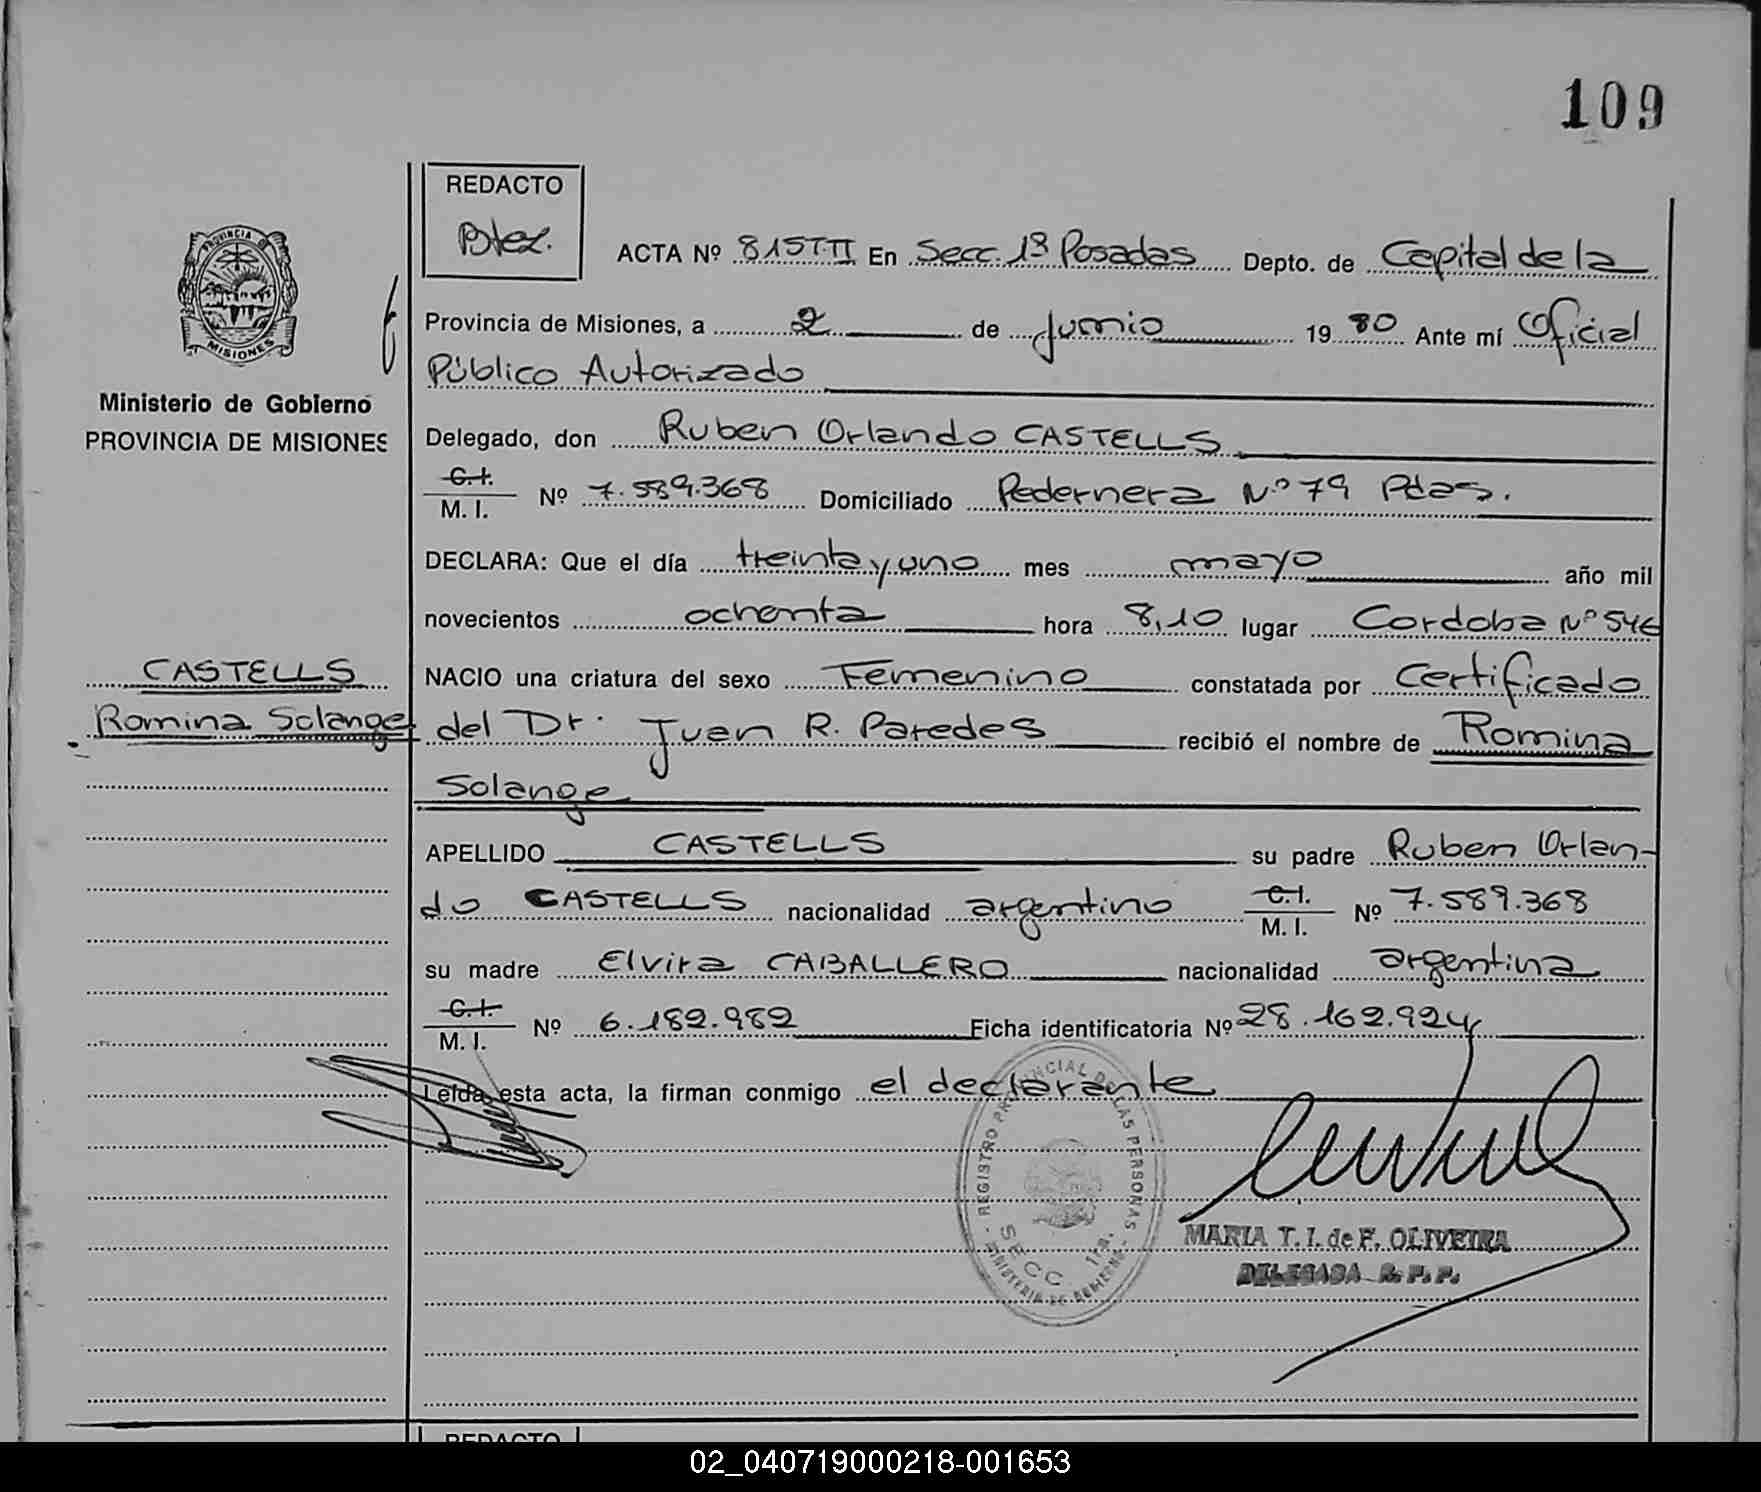 109
REDACTO
ACTA Nº 815TII En Secc. 1ª Posadas Depto. de Capital de la
PROVINCIA DE
MISIONES
Provincia de Misiones, a 2 de Junio 19 80 Ante mí Oficial
Público Autorizado
Ministerio de Gobierno
PROVINCIA DE MISIONES
Delegado, don Ruben Orlando CASTELLS
C.I.
M. I. Nº 7.589.368 Domiciliado Pedernera Nº 79 Pdas.
DECLARA: Que el día treinta y uno mes mayo año mil
novecientos ochenta hora 8,10 lugar Cordoba Nº 546
CASTELLS
Romina Solange
NACIO una criatura del sexo Femenino constatada por Certificado
del Dr. Juan R. Paredes recibió el nombre de Romina
Solange
APELLIDO CASTELLS su padre Ruben Orlan-
do CASTELLS nacionalidad argentino C.I. M. I. Nº 7.589.368
su madre Elvira CABALLERO nacionalidad argentina
C.I.
M. I. Nº 6.182.982 Ficha identificatoria Nº 28.162.924
Leída esta acta, la firman conmigo el declarante
- REGISTRO PROVINCIAL DE LAS PERSONAS -
SECC. 1ra.
MINISTERIO DE GOBIERNO
MARIA T. I. de F. OLIVEIRA
DELEGADA R. P. P.
REDACTO
02_040719000218-001653